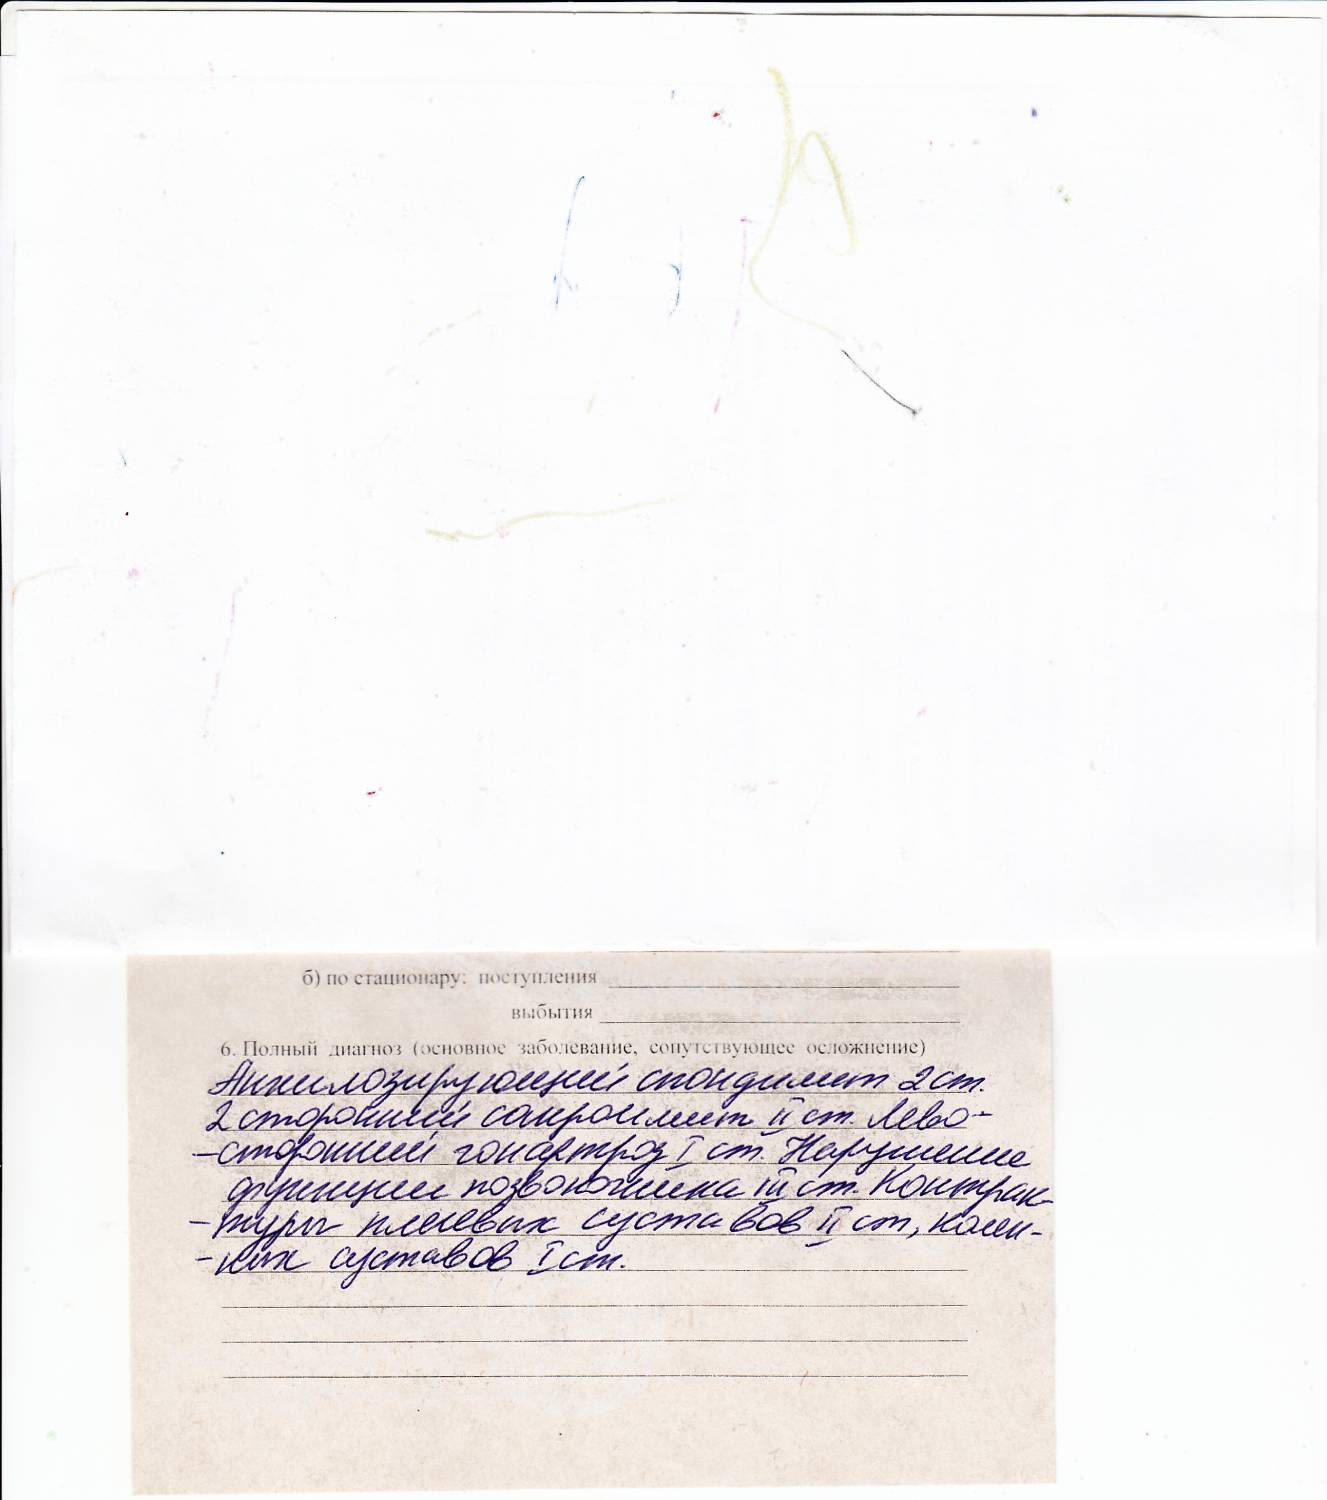 б) по стационару: поступления
выбытия
6. Полный диагноз (основное заболевание, сопутствующее осложнение)
Анкилозирующий спондилит 2 ст.
2 сторонний сакроилиит II ст. Лево-
-сторонний гонартроз I ст. Нарушение
функции позвоночника III ст. Контрак-
-туры плечевых суставов II ст, колен-
-ных суставов I ст.